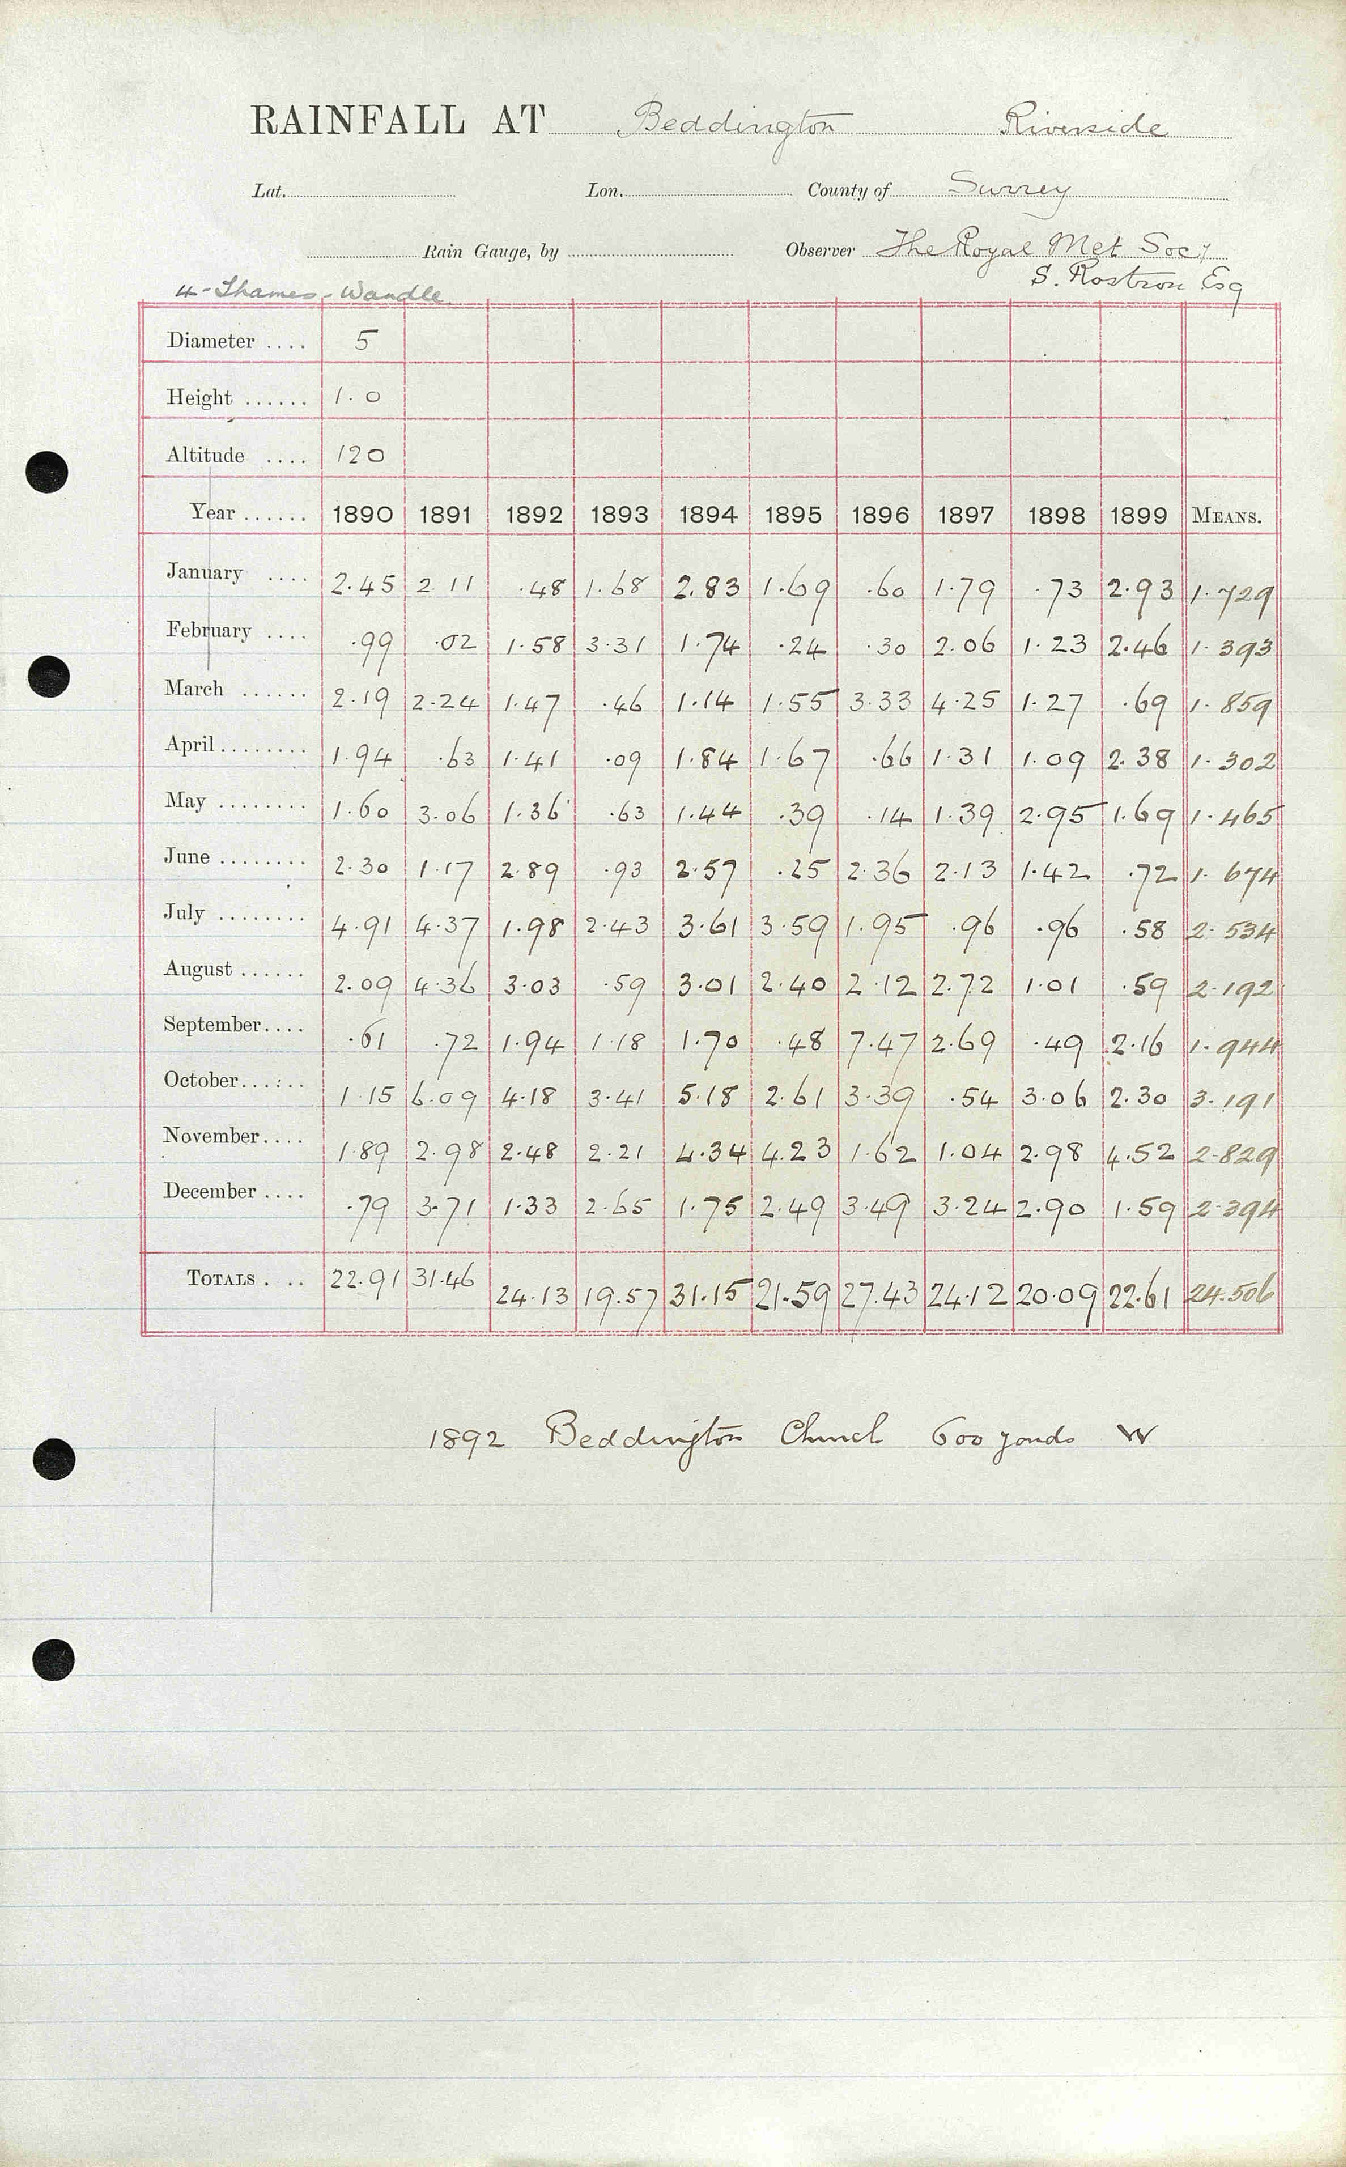 RAINFALL AT Beddington Riverside
Lat. Lon. County of Surrey
Rain Gauge, by Observer The Royal Met Socy
S. Rostron Esq
4 - Thames - Wandle
Diameter .... 5
Height ...... 1.0
Altitude .... 120
Year ...... 1890 1891 1892 1893 1894 1895 1896 1897 1898 1899 MEANS.
January .... 2.45 2 11 .48 1.68 2.83 1.69 .60 1.79 .73 2.93 1.729
February .... .99 .02 1.58 3.31 1.74 .24 .30 2.06 1.23 2.46 1.393
March ...... 2.19 2.24 1.47 .46 1.14 1.55 3.33 4.25 1.27 .69 1.859
April ........ 1.94 .63 1.41 .09 1.84 1.67 .66 1.31 1.09 2.38 1.302
May ........ 1.60 3.06 1.36 .63 1.44 .39 .14 1.39 2.95 1.69 1.465
June ........ 2.30 1.17 2.89 .93 2.57 .25 2.36 2.13 1.42 .72 1.674
July ........ 4.91 4.37 1.98 2.43 3.61 3.59 1.95 .96 .96 .58 2.534
August ...... 2.09 4.36 3.03 .59 3.01 2.40 2.12 2.72 1.01 .59 2.192
September.... .61 .72 1.94 1.18 1.70 .48 7.47 2.69 .49 2.16 1.944
October...... 1.15 6.09 4.18 3.41 5.18 2.61 3.39 .54 3.06 2.30 3.191
November.... 1.89 2.98 2.48 2.21 4.34 4.23 1.62 1.04 2.98 4.52 2.829
December .... .79 3.71 1.33 2.65 1.75 2.49 3.49 3.24 2.90 1.59 2.394
TOTALS . .. 22.91 31.46 24.13 19.57 31.15 21.59 27.43 24.12 20.09 22.61 24.506
1892 Beddington Church 600 yards W